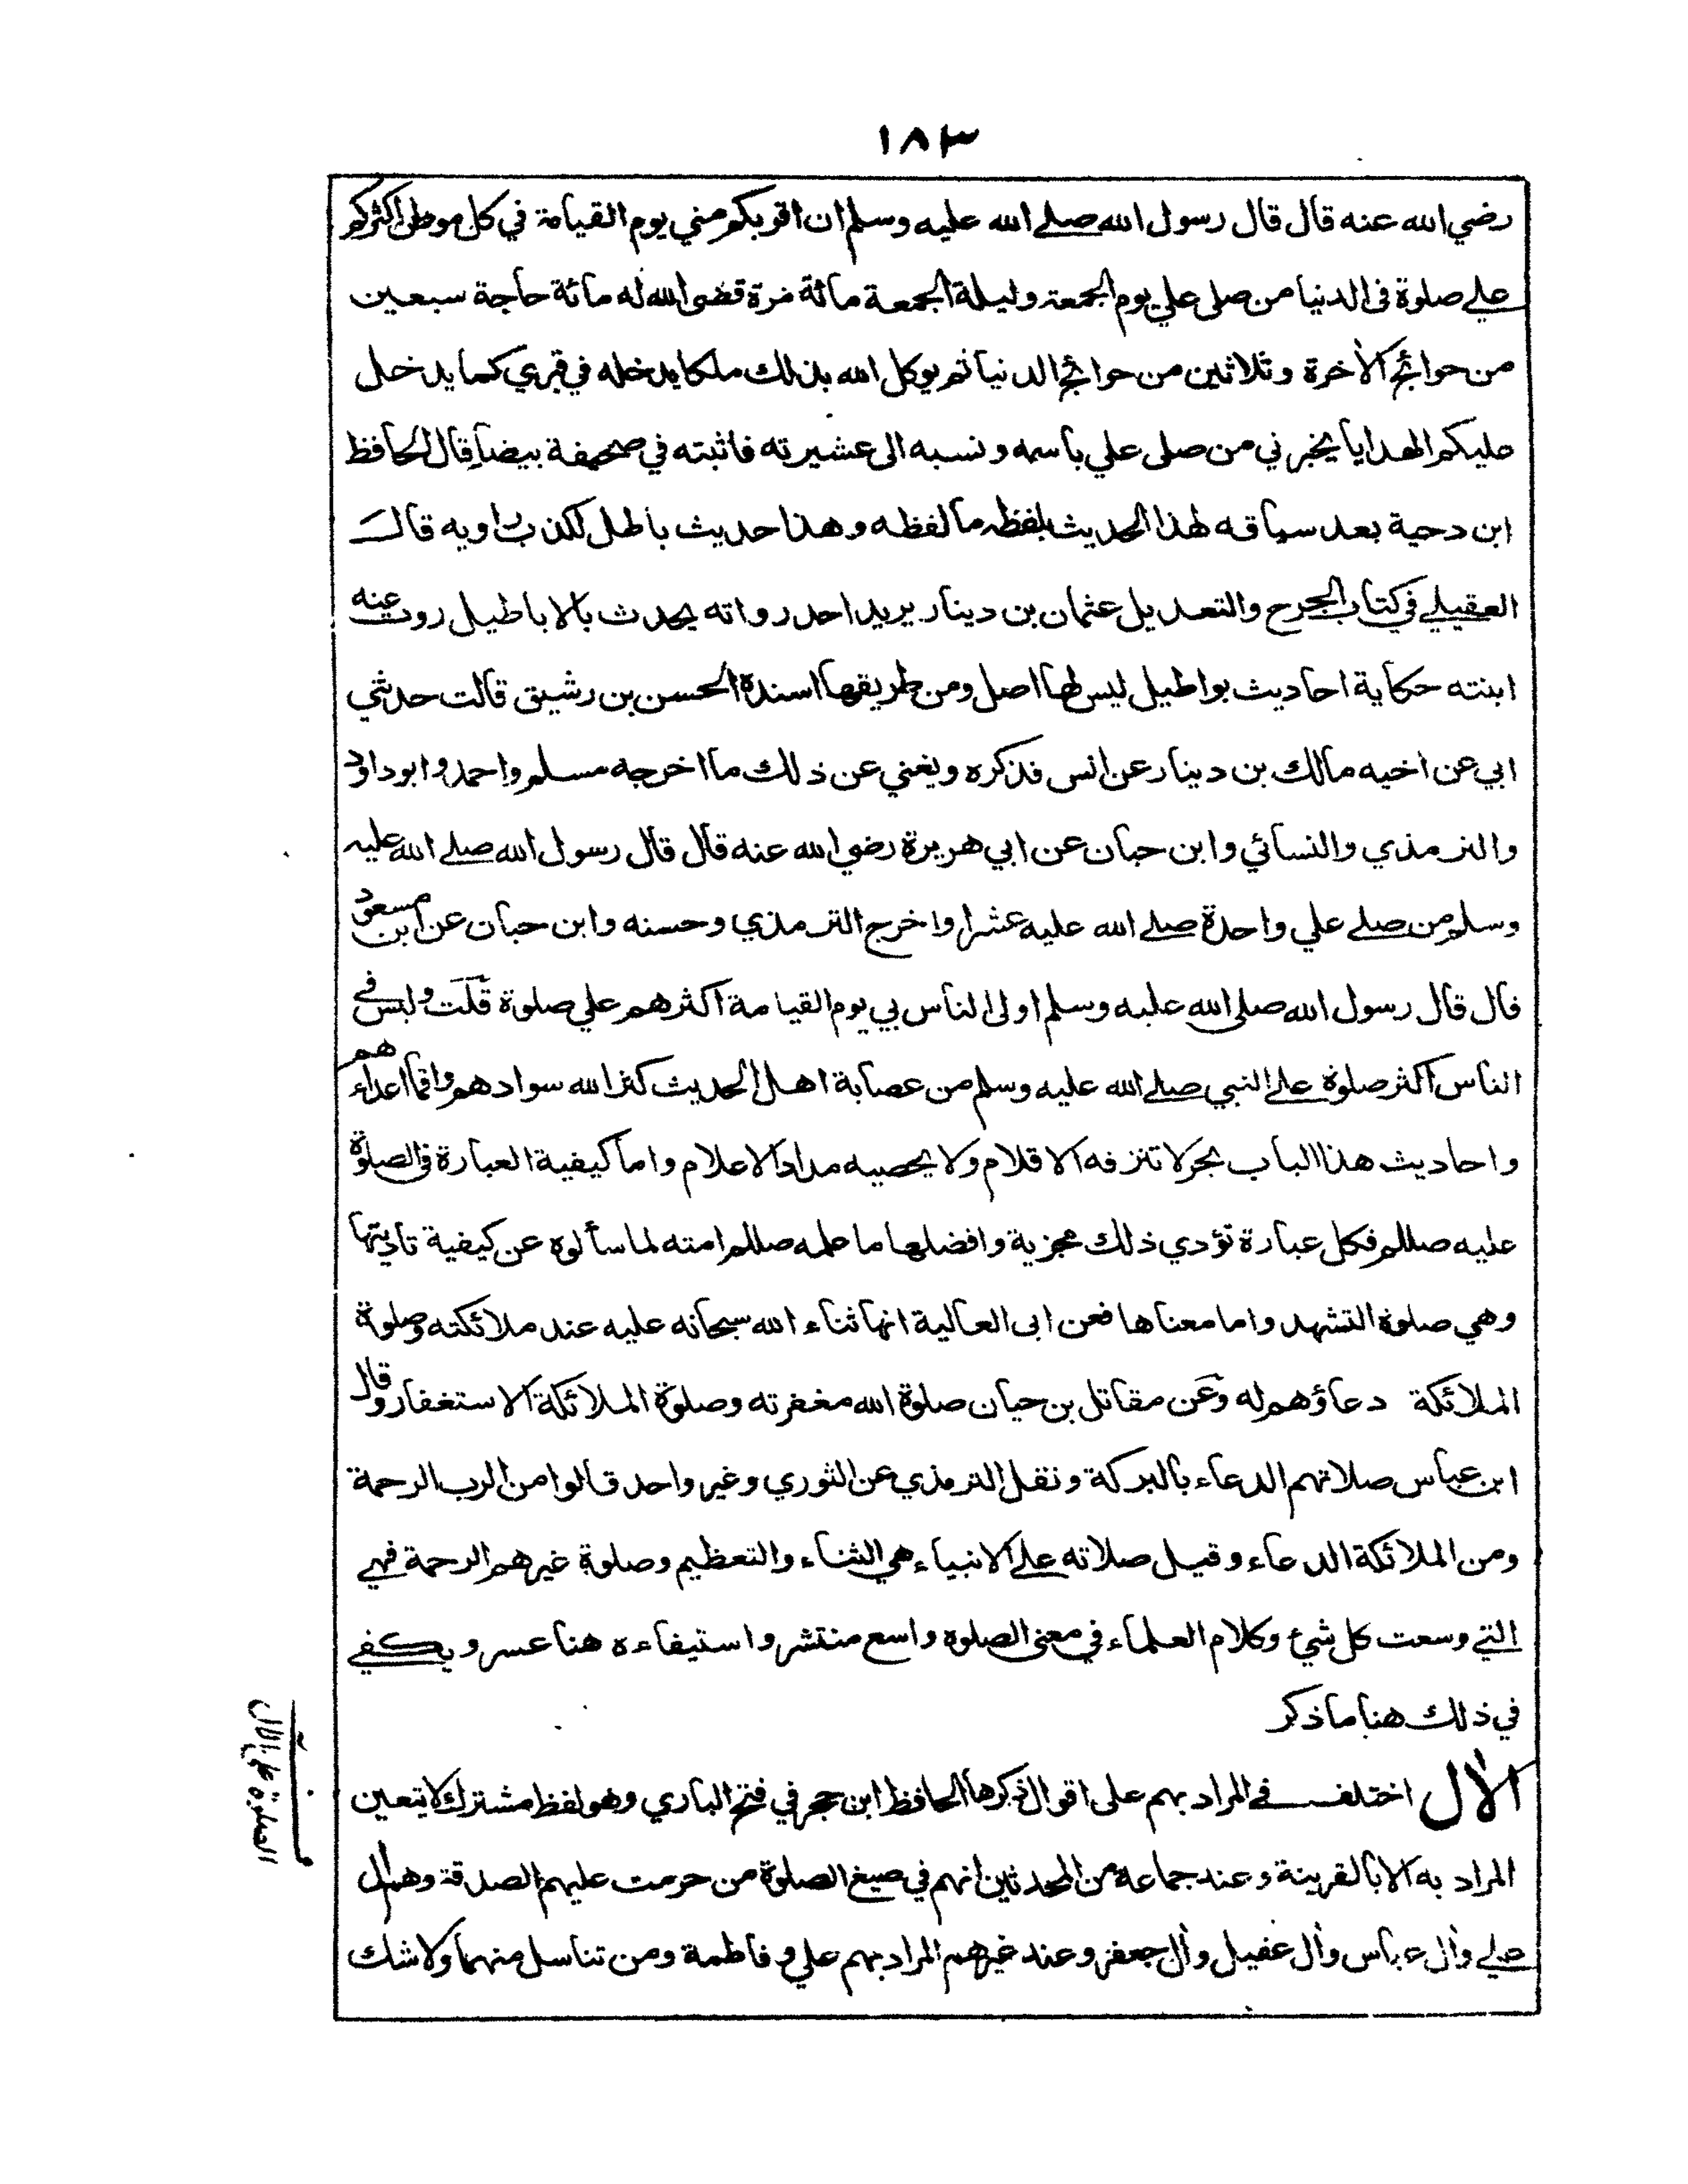 ١٨٣
رضي الله عنه قال قال رسول الله صلى الله عليه وسلم ان اقربكم مني يوم القيامة في كل موطن اكثركم
علي صلوة في الدنيا من صلى علي يوم الجمعة وليلة الجمعة مائة مرة قضى الله له مائة حاجة سبعين
من حوائج الأخرة وثلاثين من حوائج الدنيا ثم يوكل الله بذلك ملكا يدخله في قبري كما يدخل
عليكم الهدايا يخبرني من صلى علي باسمه ونسبه الى عشيرته فاثبته في صحيفة بيضاء قال الحافظ
ابن دحية بعد سياقه لهذا الحديث بلفظه ما لفظه وهذا حديث باطل لكذب راويه قال
العقيلي في كتاب الجرح والتعديل عثمان بن دينار يريد احد رواته يحدث بالاباطيل روت عنه
ابنته حكاية احاديث بواطيل ليس لها اصل ومن طريقها اسنده الحسن بن رشيق قالت حدثني
ابي عن اخيه مالك بن دينار عن انس فذكره ويغني عن ذلك ما اخرجه مسلم واحمد وابو داود
والترمذي والنسائي وابن حبان عن ابي هريرة رضي الله عنه قال قال رسول الله صلى الله عليه
وسلم من صلى علي واحدة صلى الله عليه عشرا واخرج الترمذي وحسنه وابن حبان عن ابن مسعود
قال قال رسول الله صلى الله عليه وسلم اولى الناس بي يوم القيامة اكثرهم علي صلوة قلت وليس في
الناس اكثر صلوة على النبي صلى الله عليه وسلم من عصابة اهل الحديث كثر الله سوادهم واقما اعداءهم
واحاديث هذا الباب بحر لا تنزفه الاقلام ولا يحصيه مداد الاعلام واما كيفية العبارة في الصلوة
عليه صللم فكل عبارة تؤدي ذلك مجزية وافضلها ما علمه صللم امته لما سألوه عن كيفية تاديتها
وهي صلوة التشهد واما معناها فعن ابى العالية انها ثناء الله سبحانه عليه عند ملائكته وصلوة
الملائكة دعاؤهم له وعن مقاتل بن حيان صلوة الله مغفرته وصلوة الملائكة الاستغفار وقال
ابن عباس صلاتهم الدعاء بالبركة ونقل الترمذي عن الثوري وغير واحد قالوا من الرب الرحمة
ومن الملائكة الدعاء وقيل صلاته على الانبياء هي الثناء والتعظيم وصلوة غيرهم الرحمة فهي
التي وسعت كل شيء وكلام العلماء في معنى الصلوة واسع منتشر واستيفاءه هنا عسر ويكفي
في ذلك هنا ما ذكر
الأل اختلف في المراد بهم على اقوال ذكرها الحافظ ابن حجر في فتح الباري وهو لفظ مشترك لا يتعين
المراد به الا بالقرينة وعند جماعة من المحدثين انهم في صيغ الصلوة من حرمت عليهم الصدقة وهم أل
علي وأل عباس وأل عقيل وأل جعفر وعند غيرهم المراد بهم علي وفاطمة ومن تناسل منهما ولا شك
الصلوة على الآل